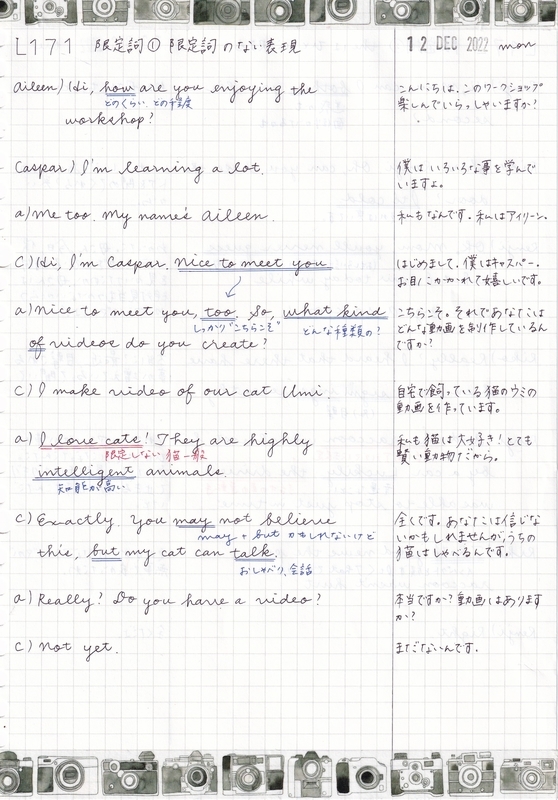 L171 限定詞① 限定詞のない表現
12 DEC 2022 mon
aileen) Hi, how are you enjoying the
どのくらい どの程度
workshop?
こんにちは、このワークショップ
楽しんでいらっしゃいますか?
Caspar) I'm learning a lot.
僕はいろいろな事を学んで
いますよ。
a) Me too. My name's Aileen.
私もなんです。私はアイリーン。
C) Hi, I'm Caspar. Nice to meet you
はじめまして、僕はキャスパー。
お目にかかれて嬉しいです。
a) Nice to meet you, too. So, what kind
しっかり"こちらこそ" どんな種類の?
of videos do you create?
こちらこそ。それであなたは
どんな動画を制作しているん
ですか?
C) I make video of our cat Umi.
自宅で飼っている猫のウミの
動画を作っています。
a) I love cats! They are highly
限定しない 猫一般
intelligent animals.
知能が高い
私も猫は大好き!とても
賢い動物だから。
C) Exactly. You may not believe
may + but かもしれないけど
this, but my cat can talk.
おしゃべり、会話
全くです。あなたは信じな
いかもしれませんがうちの
猫はしゃべるんです。
a) Really? Do you have a video?
本当ですか?動画はあります
か?
C) Not yet.
まだないんです。